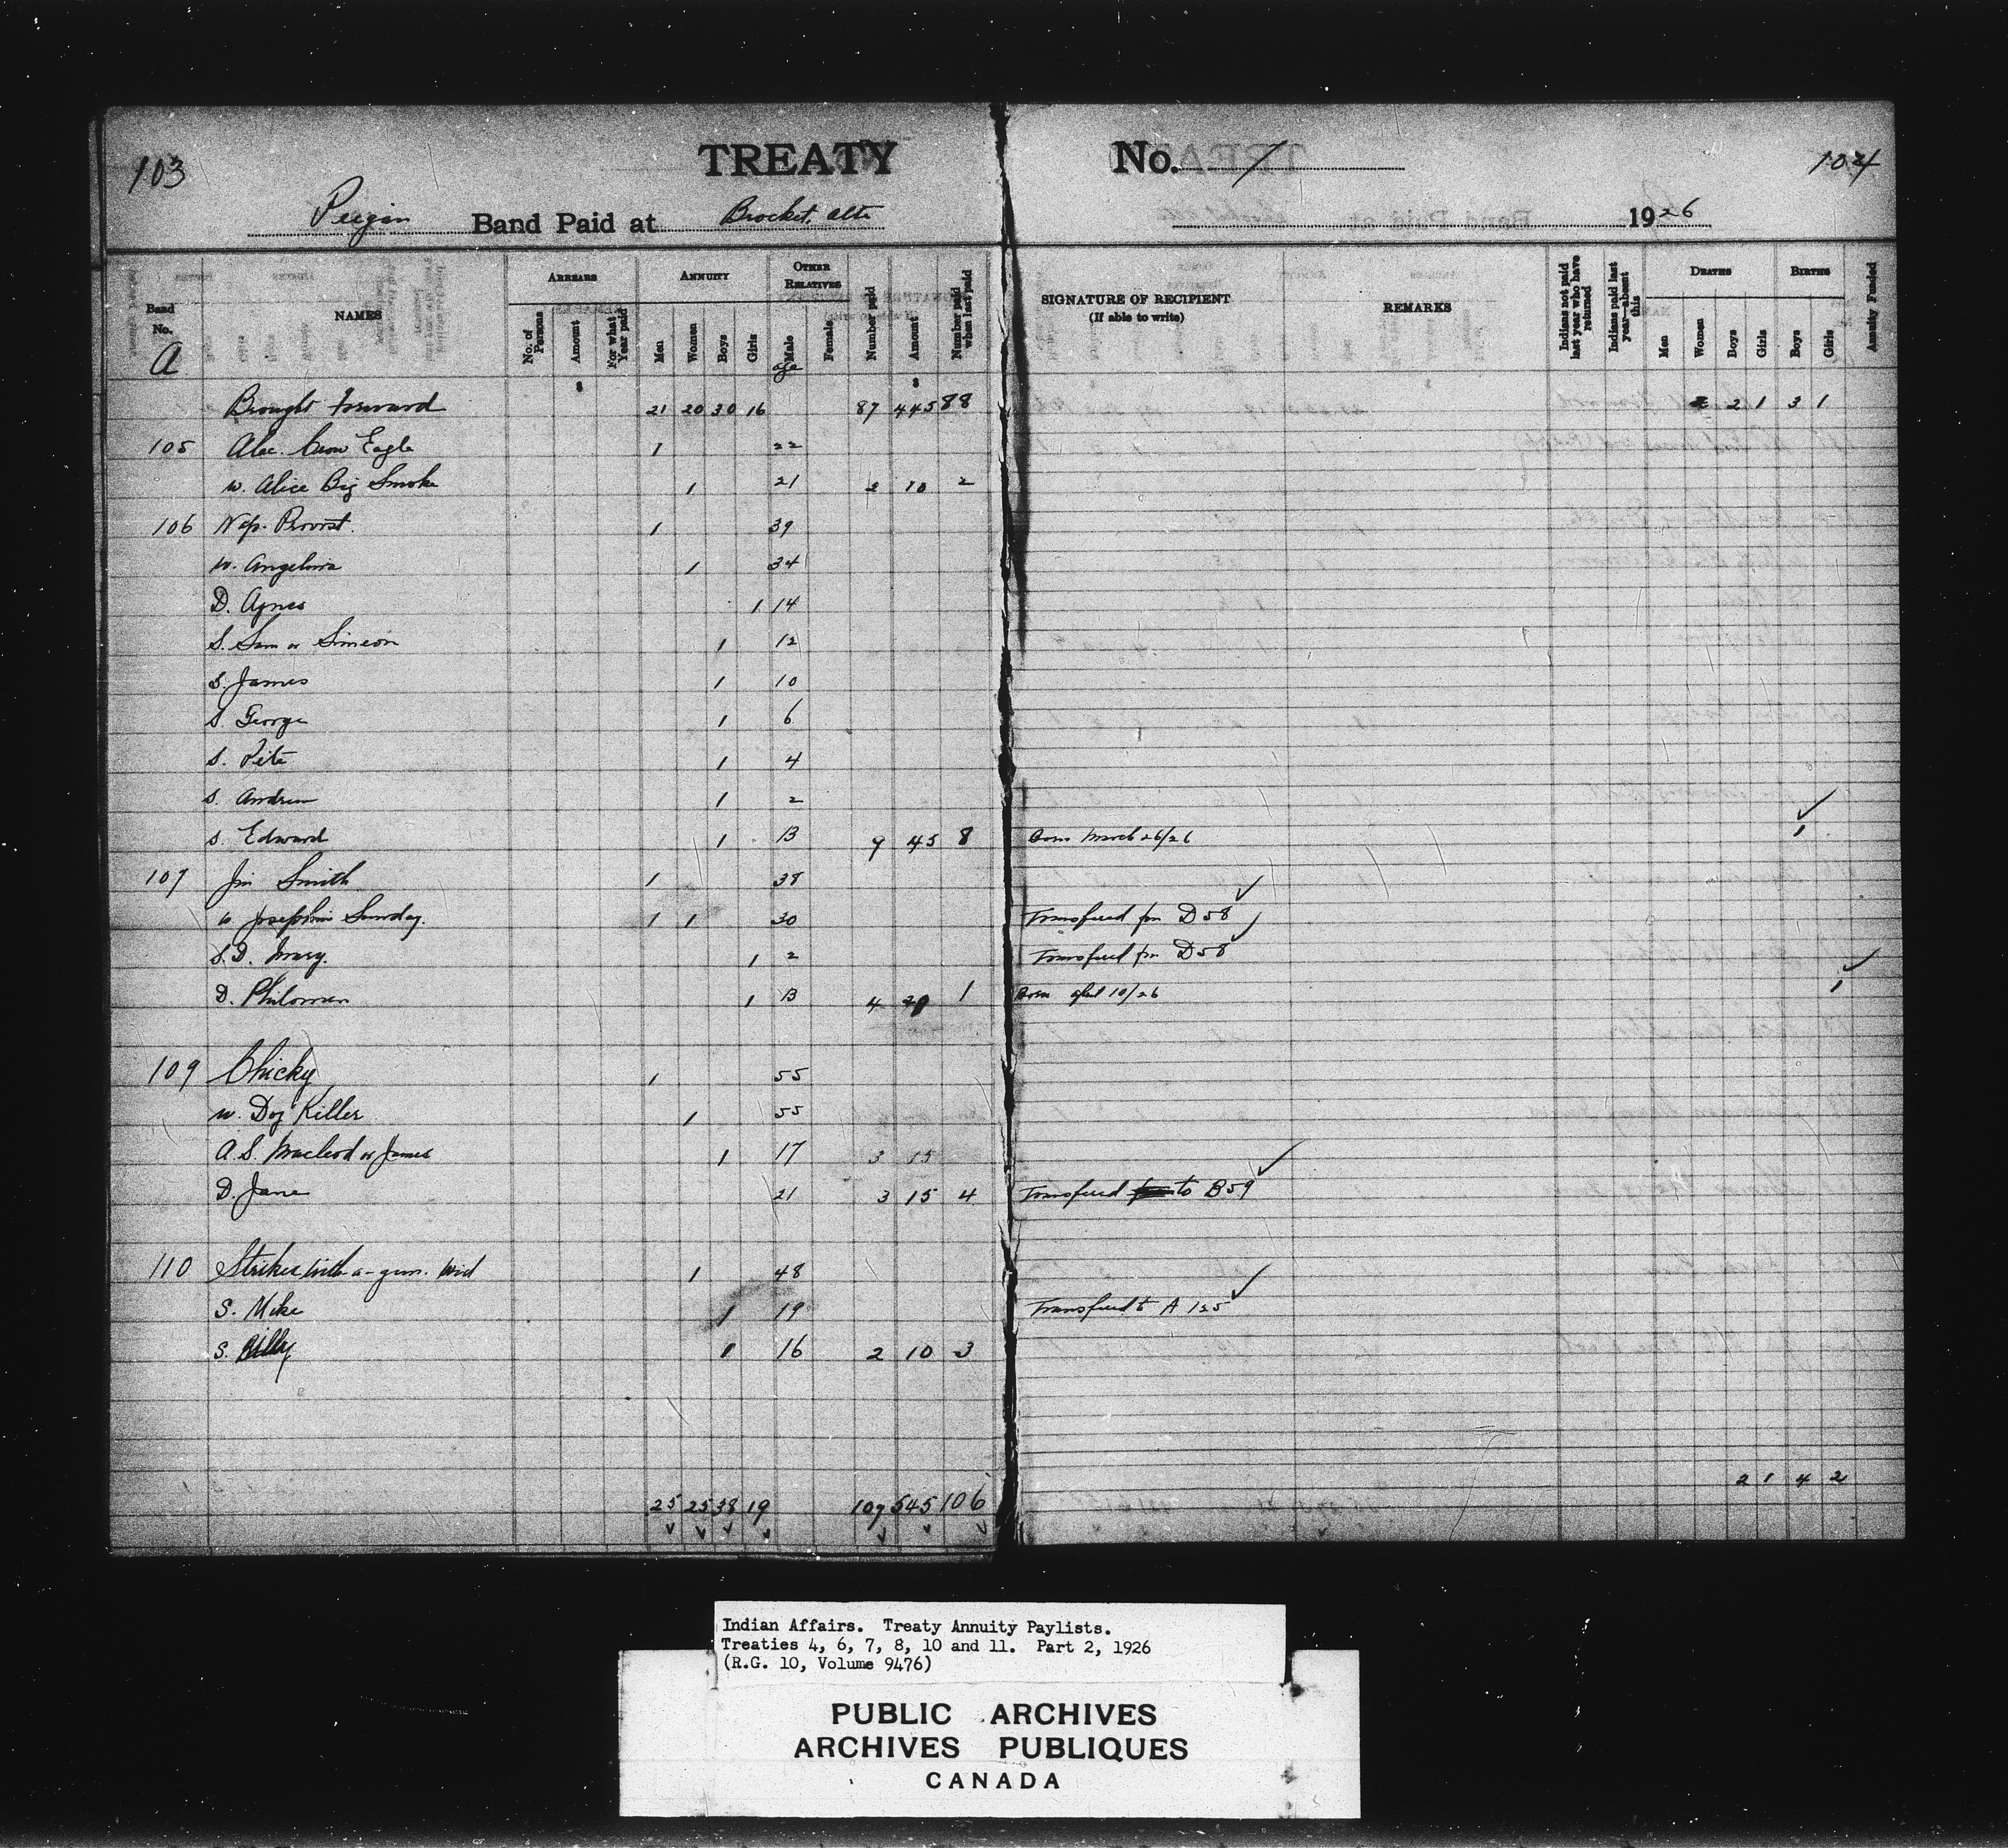 103
TREATY No. 7
104
Peigan Band Paid at Brocket, Alta 1926
Band No. A
NAMES
ARREARS
No. of Persons
Amount
For what Year paid
ANNUITY
Men
Women
Boys
Girls
OTHER RELATIVES
Male
age
Female
Number paid
Amount
Number paid when last paid
SIGNATURE OF RECIPIENT
(If able to write)
REMARKS
Indians not paid last year who have returned
Indians paid last year—absent this
DEATHS
Men
Women
Boys
Girls
BIRTHS
Boys
Girls
Annuity Funded
$ $
Brought Forward 21 20 30 16 87 445 88 2 1 3 1
105 Alec. Crow Eagle 1 22
w. Alice Big Smoke 1 21 2 10 2
106 Nap. Provost. 1 39
w. Angelina 1 34
D. Agnes 1 14
S. Sam or Simeon 1 12
S. James 1 10
S. George 1 6
S. Pete 1 4
S. Andrew 1 2
S. Edward 1 B 9 45 8 Born March 26/26 1
107 Jim Smith 1 38
w. Josephine Sunday. 1 1 30 Transfered from D 58
S.D. Mary. 1 2 Transfered from D 58
D. Philomen 1 B 4 20 1 Born April 10/26 1
109 Chicky 1 55
w. Dog Killer 1 55
A.S. Macleod or James 1 17 3 15
D. Jane 21 3 15 4 Transfered to B 59
110 Strikes with-a-gun. Wid 1 48
S. Mike 1 19 Transfered to A 125
S. Billy 1 16 2 10 3
2 1 4 2
25 25 38 19 109 545 106
Indian Affairs. Treaty Annuity Paylists.
Treaties 4, 6, 7, 8, 10 and 11. Part 2, 1926
(R.G. 10, Volume 9476)
PUBLIC ARCHIVES
ARCHIVES PUBLIQUES
CANADA